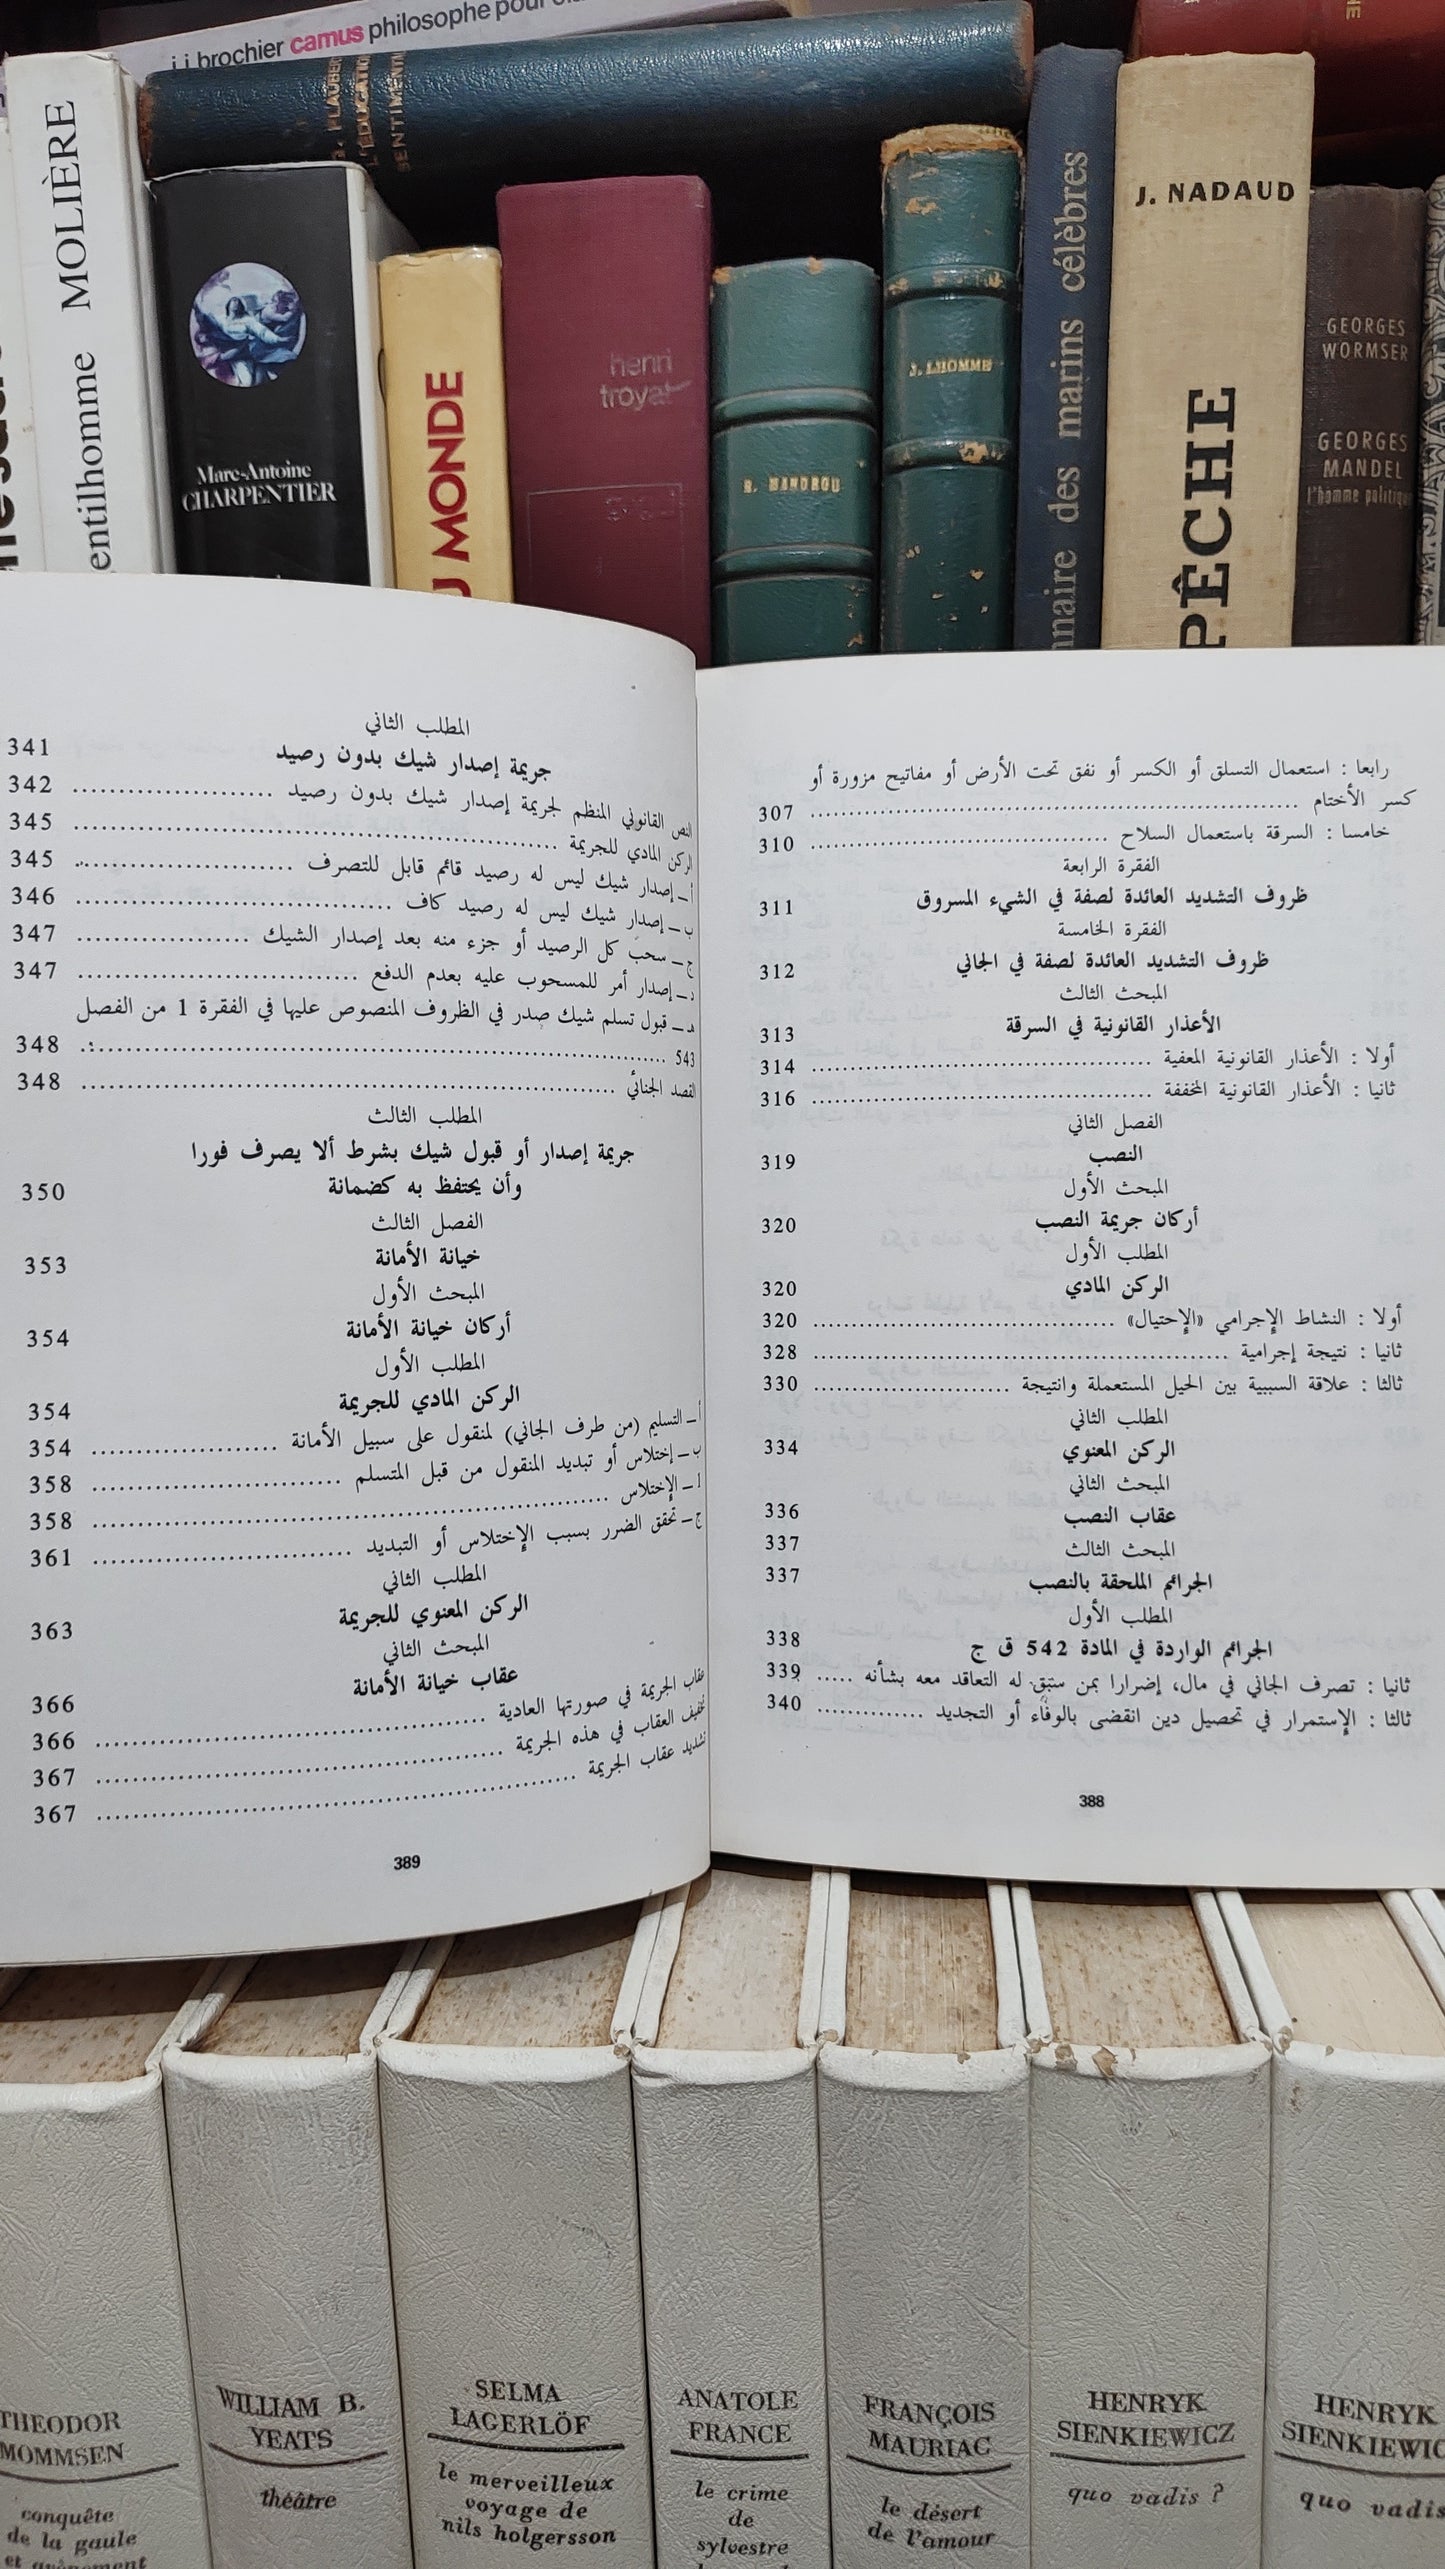 j.j.brochier camus philosophe pour
G. FLAUBERT
L'ÉDUCATION
SENTIMENTALE
MOLIÈRE
entilhomme
Marc-Antoine
CHARPENTIER
U MONDE
henri
troyat
R. MANDROU
J. LHOMME
nnaire des marins célèbres
J. NADAUD
PÊCHE
GEORGES
WORMSER
GEORGES
MANDEL
l'homme politique
رابعا : استعمال التسلق أو الكسر أو نفق تحت الأرض أو مفاتيح مزورة أو
كسر الأختام 307
خامسا : السرقة باستعمال السلاح 310
الفقرة الرابعة
ظروف التشديد العائدة لصفة في الشيء المسروق 311
الفقرة الخامسة
ظروف التشديد العائدة لصفة في الجاني 312
المبحث الثالث
الأعذار القانونية في السرقة 313
أولا : الأعذار القانونية المعفية 314
ثانيا : الأعذار القانونية المخففة 316
الفصل الثاني
النصب 319
المبحث الأول
أركان جريمة النصب 320
المطلب الأول
الركن المادي 320
أولا : النشاط الإجرامي «الإحتيال» 320
ثانيا : نتيجة إجرامية 328
ثالثا : علاقة السببية بين الحيل المستعملة وانتيجة 330
المطلب الثاني
الركن المعنوي 334
المبحث الثاني
عقاب النصب 336
المبحث الثالث 337
الجرائم الملحقة بالنصب 337
المطلب الأول
الجرائم الواردة في المادة 542 ق ج 338
ثانيا : تصرف الجاني في مال، إضرارا بمن سبق له التعاقد معه بشأنه 339
ثالثا : الإستمرار في تحصيل دين انقضى بالوفاء أو التجديد 340
388
المطلب الثاني
جريمة إصدار شيك بدون رصيد 341
النص القانوني المنظم لجريمة إصدار شيك بدون رصيد 342
الركن المادي للجريمة 345
أ ـ إصدار شيك ليس له رصيد قائم قابل للتصرف 345
ب ـ إصدار شيك ليس له رصيد كاف 346
ج ـ سحب كل الرصيد أو جزء منه بعد إصدار الشيك 347
د ـ إصدار أمر للمسحوب عليه بعدم الدفع 347
هـ ـ قبول تسلم شيك صدر في الظروف المنصوص عليها في الفقرة 1 من الفصل
543 348
القصد الجنائي 348
المطلب الثالث
جريمة إصدار أو قبول شيك بشرط ألا يصرف فورا
وأن يحتفظ به كضمانة 350
الفصل الثالث
خيانة الأمانة 353
المبحث الأول
أركان خيانة الأمانة 354
المطلب الأول
الركن المادي للجريمة 354
أ ـ التسليم (من طرف الجاني) لمنقول على سبيل الأمانة 354
ب ـ إختلاس أو تبديد المنقول من قبل المتسلم 358
ـ الإختلاس 358
ج ـ تحقق الضرر بسبب الإختلاس أو التبديد 361
المطلب الثاني
الركن المعنوي للجريمة 363
المبحث الثاني
عقاب خيانة الأمانة 366
عقاب الجريمة في صورتها العادية 366
تخفيف العقاب في هذه الجريمة 367
تشديد عقاب الجريمة 367
389
THEODOR
MOMMSEN
conquête
de la gaule
WILLIAM B.
YEATS
théâtre
SELMA
LAGERLÖF
le merveilleux
voyage de
nils holgersson
ANATOLE
FRANCE
le crime
de
sylvestre
FRANÇOIS
MAURIAC
le désert
de l'amour
HENRYK
SIENKIEWICZ
quo vadis ?
HENRYK
SIENKIEWIC
quo vadis